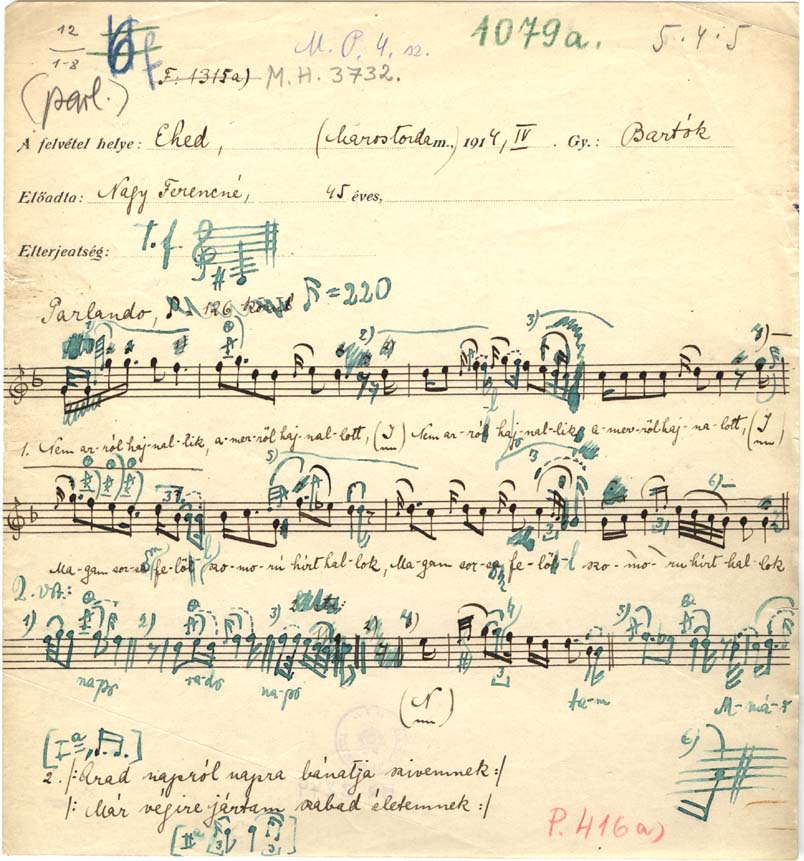 12
1-8
6f
M. P. 4. sz.
1079a.
5.4.5
(parl.)
F. 1315a) M.H. 3732.
A felvétel helye: Ehed, (Marostorda m.,) 1914, IV. Gy.: Bartók
Előadta: Nagy Ferencné, 45 éves,
Elterjeatség: t.f.
Parlando, ♪=126 körül ♪=220
1) 2) 3) 4)
1. Nem arról haj-nal-lik, a-mer-ről haj-nal-lott, (I) Nem ar-ról haj-nal-lik, a-mer-ről haj-na-lott, (I)
5) 3) 6)
Ma-gam sor-sa fe-lől szo-mo-rú hírt hal-lok, Ma-gam sor-sa fe-lől szo-mo-ru hírt hal-lok
2. va:
1) 2) 3) 4) 5)
na-pr ra-pr na-pr ta-m M-má-r
(N)
6)
[Iª, ]
2. /: Arad napról napra bánatja szivemnek :/
/: Már végire jártam szabad eletemnek :/
[IIª ]
P. 416a)